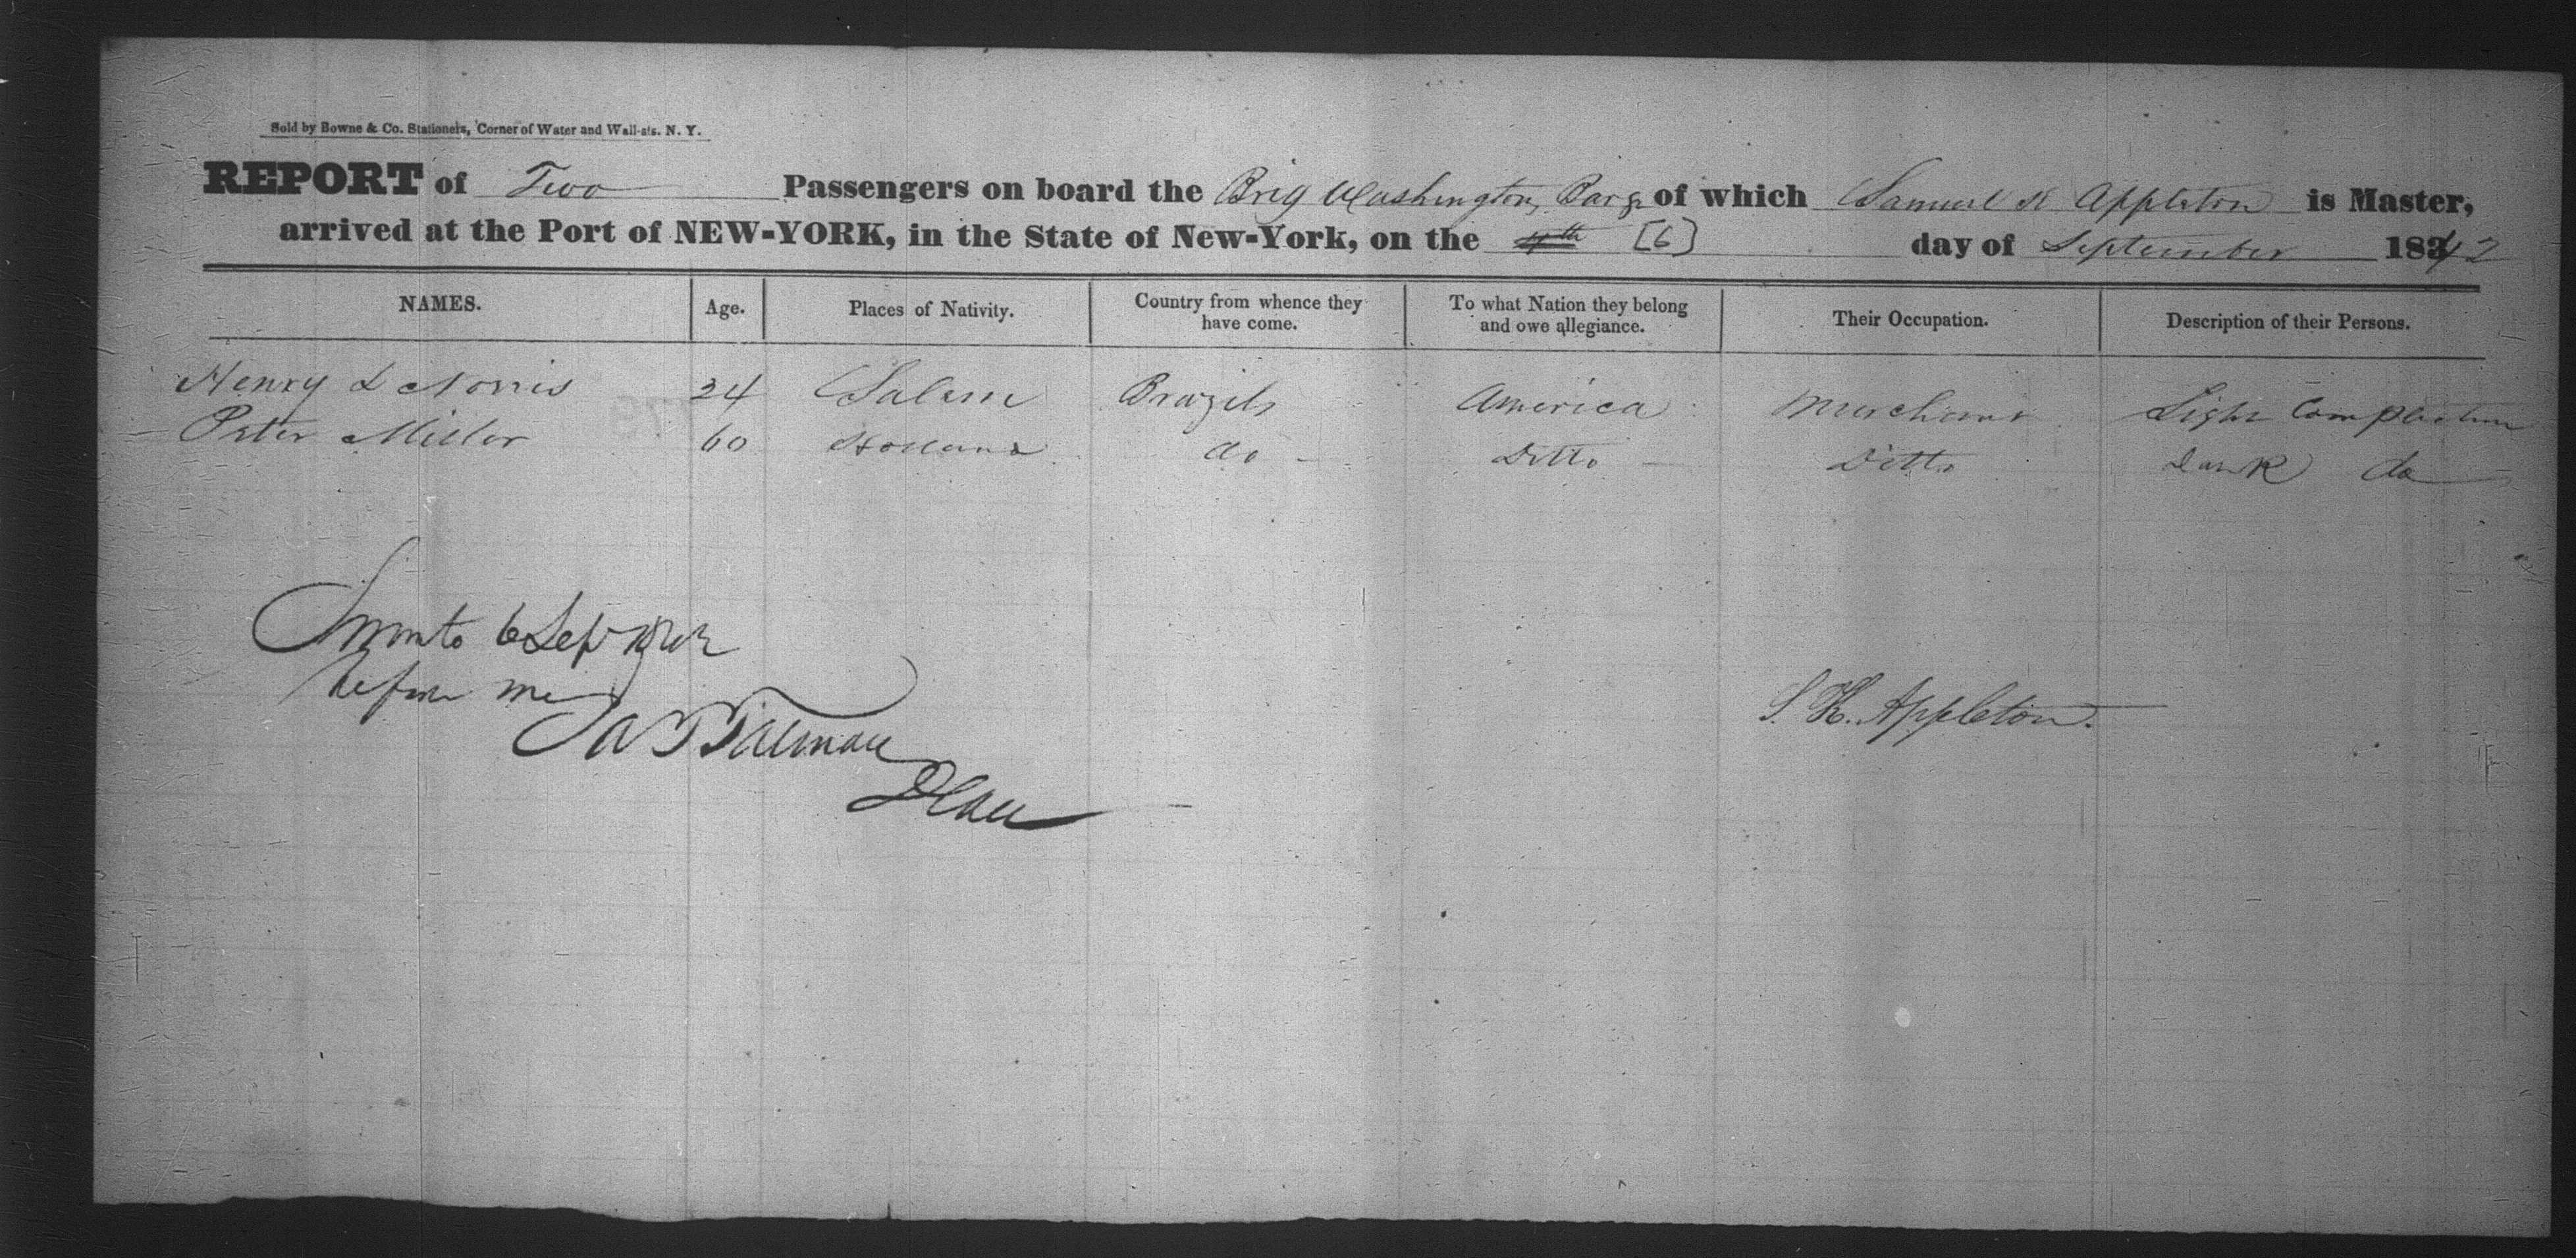 Sold by Bowne & Co. Stationers, Corner of Water and Wall-sts. N. Y.
REPORT of Two Passengers on board the Brig Washington, Barge of which Samuel H Appleton is Master,
arrived at the Port of NEW-YORK, in the State of New-York, on the 4th [6] day of September 1842
NAMES. Age. Places of Nativity. Country from whence they have come. To what Nation they belong and owe allegiance. Their Occupation. Description of their Persons.
Henry L Norris 24 Salem Brazils America Merchant Light Complection
Peter Miller 60 Holland do Ditto Ditto Dark do
Sworn to 6 Sep 1842
before me
S. H. Appleton.